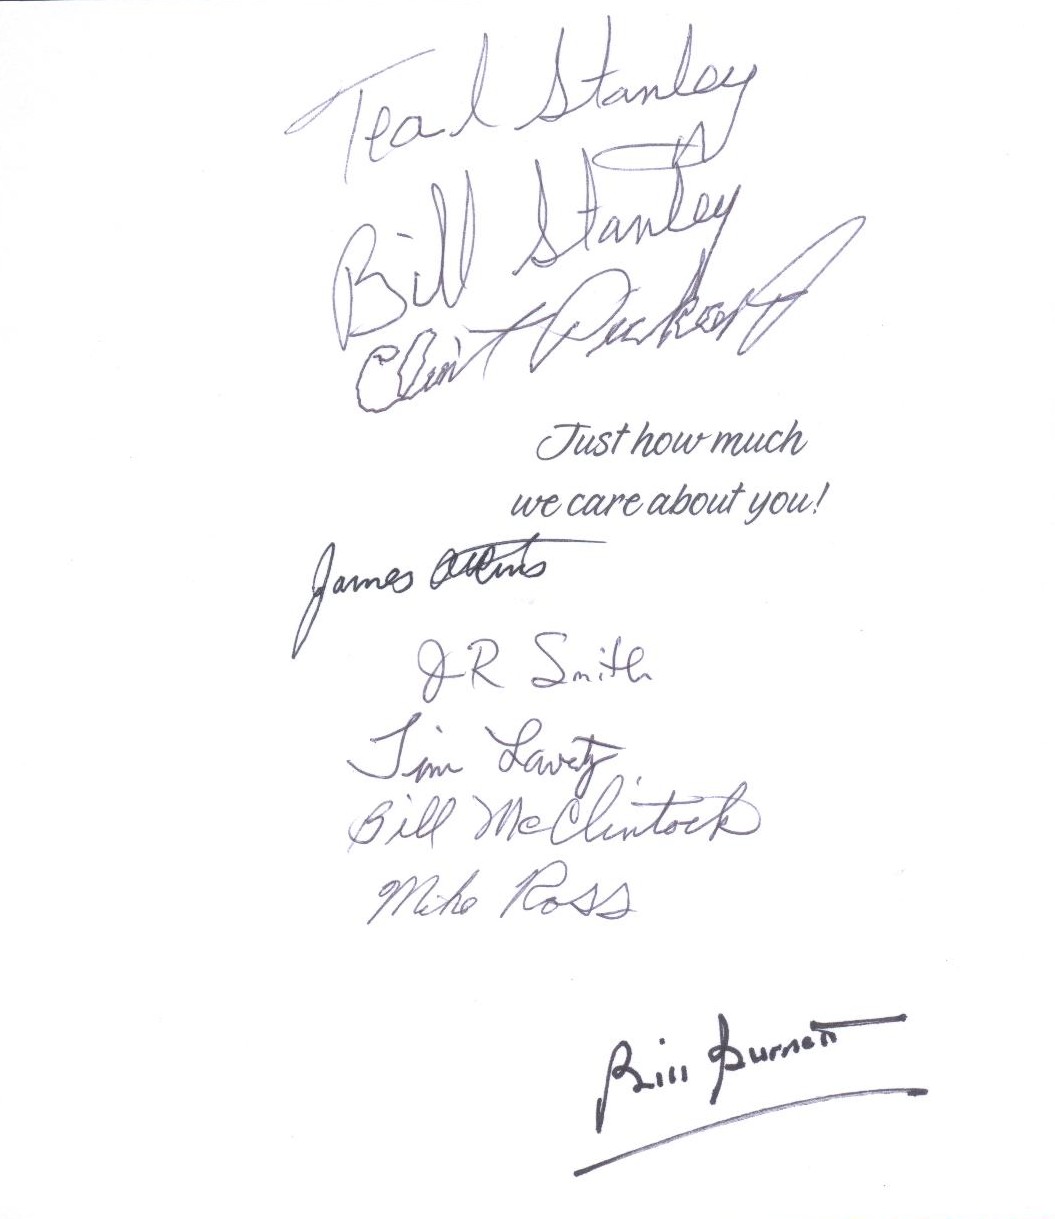 Teal Stanley
Bill Stanley
Clint
Just how much
we care about you!
James
JR Smith
Tim
Bill McClintock
Mike Ross
Bill Burnett